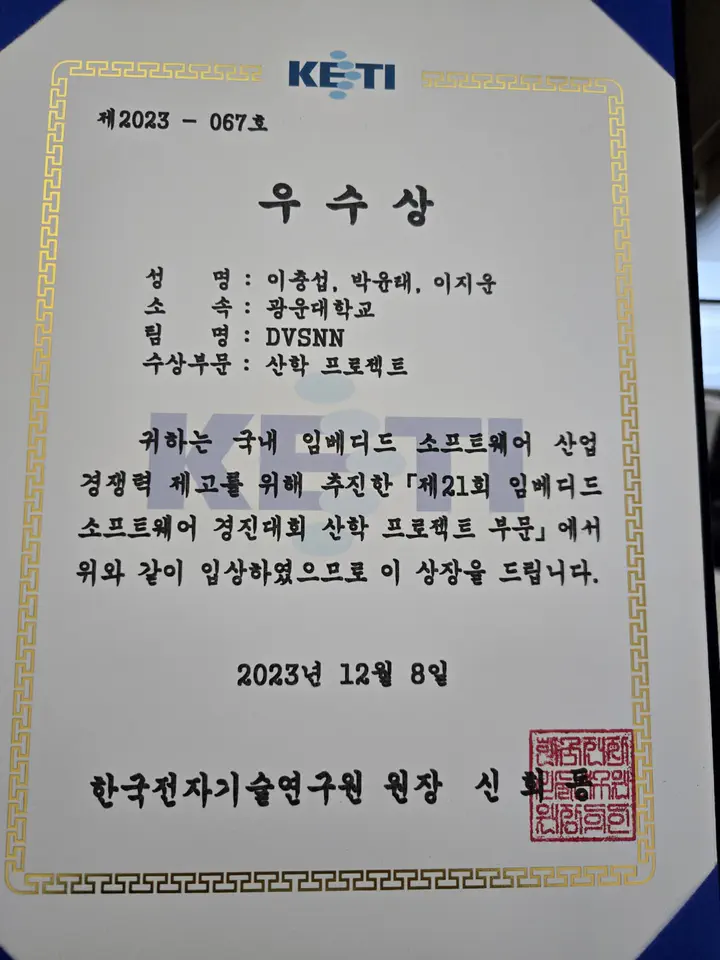 KETI
제2023 - 067호
우 수 상
성 명 : 이충섭, 박윤태, 이지운
소 속 : 광운대학교
팀 명 : DVSNN
수상부문 : 산학 프로젝트
귀하는 국내 임베디드 소프트웨어 산업
경쟁력 제고를 위해 추진한 「제21회 임베디드
소프트웨어 경진대회 산학 프로젝트 부문」에서
위와 같이 입상하였으므로 이 상장을 드립니다.
2023년 12월 8일
한국전자기술연구원 원장 신 희 동